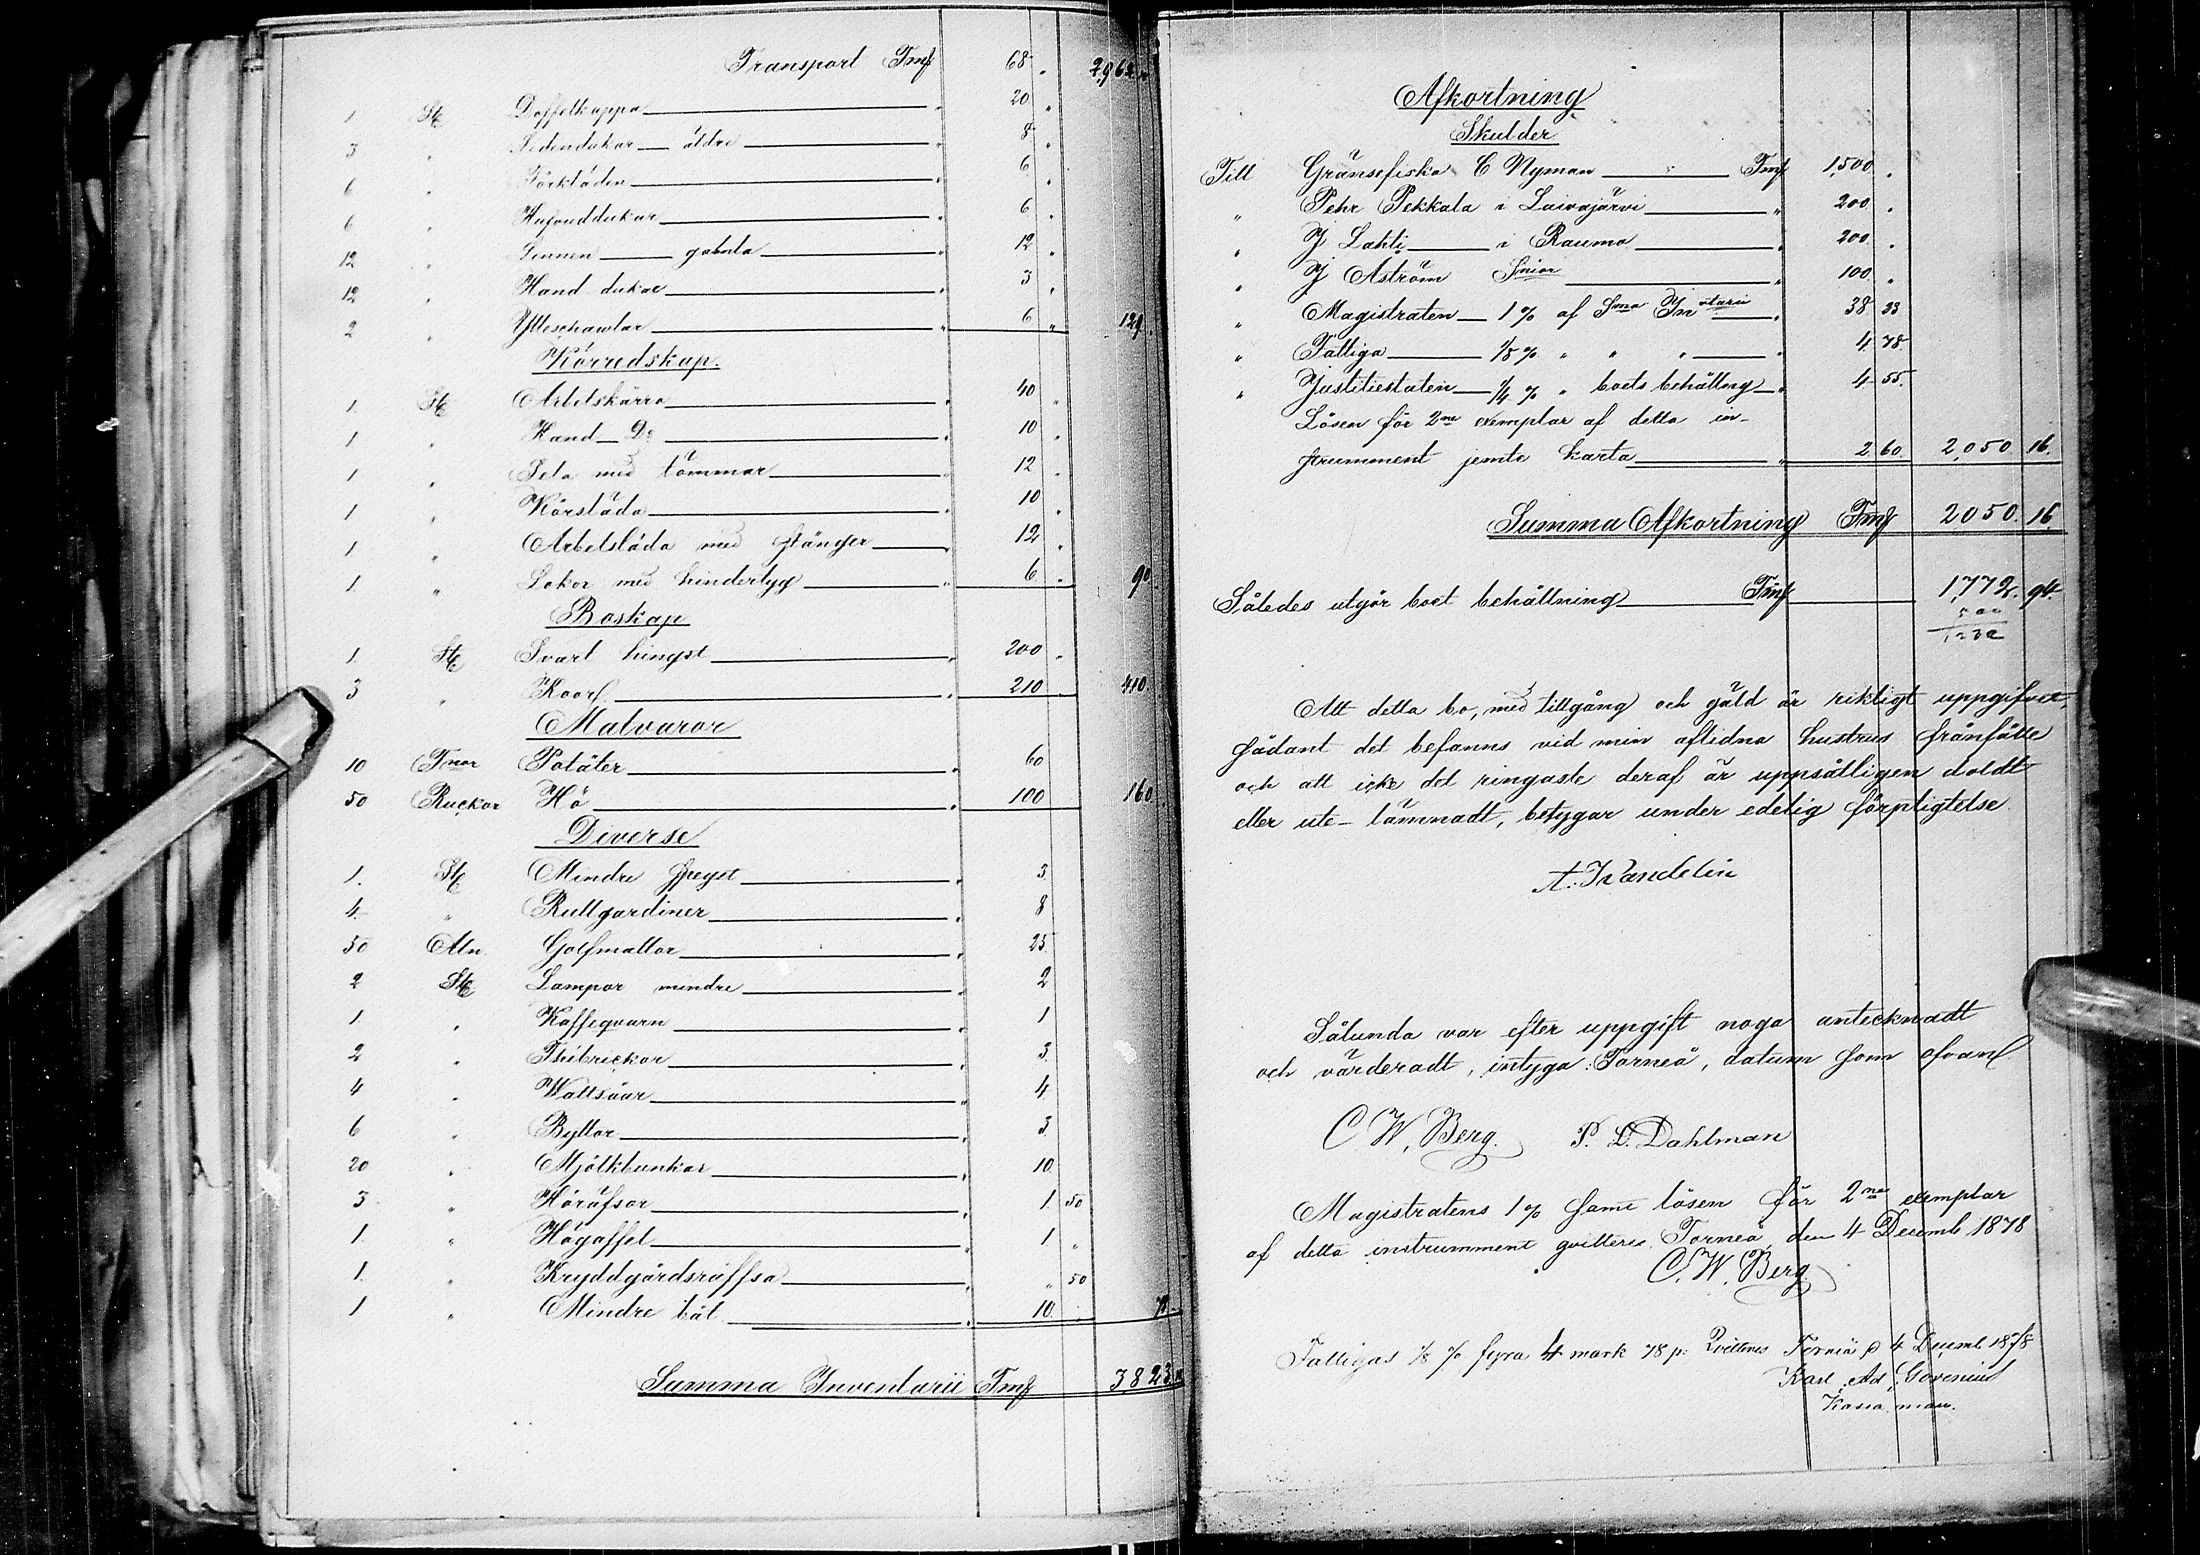 Transport Tmf 68 " 2,962 "
1 St Doffelkappa " 20 "
3 " Sidendukar äldre " 8 "
6 " Förkläden " 6 "
6 " Hufvuddukar " 6 "
12 " Linnen gamla " 12 "
12 " Hand dukar " 3 "
2 " Ylleschawlar " 6 " 129
Körredskap.
1 St Arbetskärra " 40 "
1 " Hand Do " 10 "
1 " Sela med tömmar " 12 "
1 " Körsläda " 10 "
1 " Arbetsläda med stänger " 12 "
1 " Lokor med hindertyg " 6 " 90
Boskap
1 St Svart hingst " 200 "
3 " Koor " 210 410
Matvaror
10 Tnor Potäter " 60
50 Ruckor Hö " 100 160
Diverse
1. St Mindre spegel " 3.
4 " Rullgardiner " 8
50 Aln Golfmattor " 25
2 St Lampor mindre " 2
1 " Kaffeqvarn " 1
2 " Thébrickor " 3.
4 " Wattsåar " 4
6 " Byttor " 3.
20 " Mjölkbunkar " 10
3 " Höräfsor " 1 50
1. " Högaffel " 1 "
1. " Kryddgårdsräffsa " " 50
1 " Mindre båt " 10
Summa Inventarii Tmf 3823
Afkortning
Skulder
Till Gränsefiska C Nyman Tmf 1,500 "
" Pehr Pekkala i Laivajärvi " 200 "
" J Lahti i Raumo " 200 "
" J Åström Snior " 100 "
" Magistraten 1 % af Sma Inntarii " 38 23
" Fattiga 1/8 % " " " " 4 78
" Justitiestaten 1/4 % " boets behållng " 4 55.
Lösen för 2ne exemplar af detta in-
strumment jemte karta " 2 60 2,050 16.
Summa Afkortning Tmf 2050. 16
Således utgör boet behållning Tmf 1,772. 94.
500
1232
Att detta bo, med tillgång och gäld är riktigt uppgifvet,
sådant det befanns vid min aflidna hustrus frånfälle
och att icke det ringaste deraf är uppsåtligen doldt
eller ute-lämnadt, betygar under edelig förpligtelse
A. Wandelin
Sålunda var efter uppgift noga antecknadt
och värderadt, intyga: Torneå, datum som ofvan
C W. Berg. P. L. Dahlman
Magistratens 1 % samt lösen för 2ne exemplar
af detta instrumment qvitteres Torneå den 4 Decemb 1878
C. W. Berg
Fattigas 1/8 % fyra 4 mark 78 p: Qvitteres Torneå d 4 Decemb 1878
Karl Ad.
Kassa man.